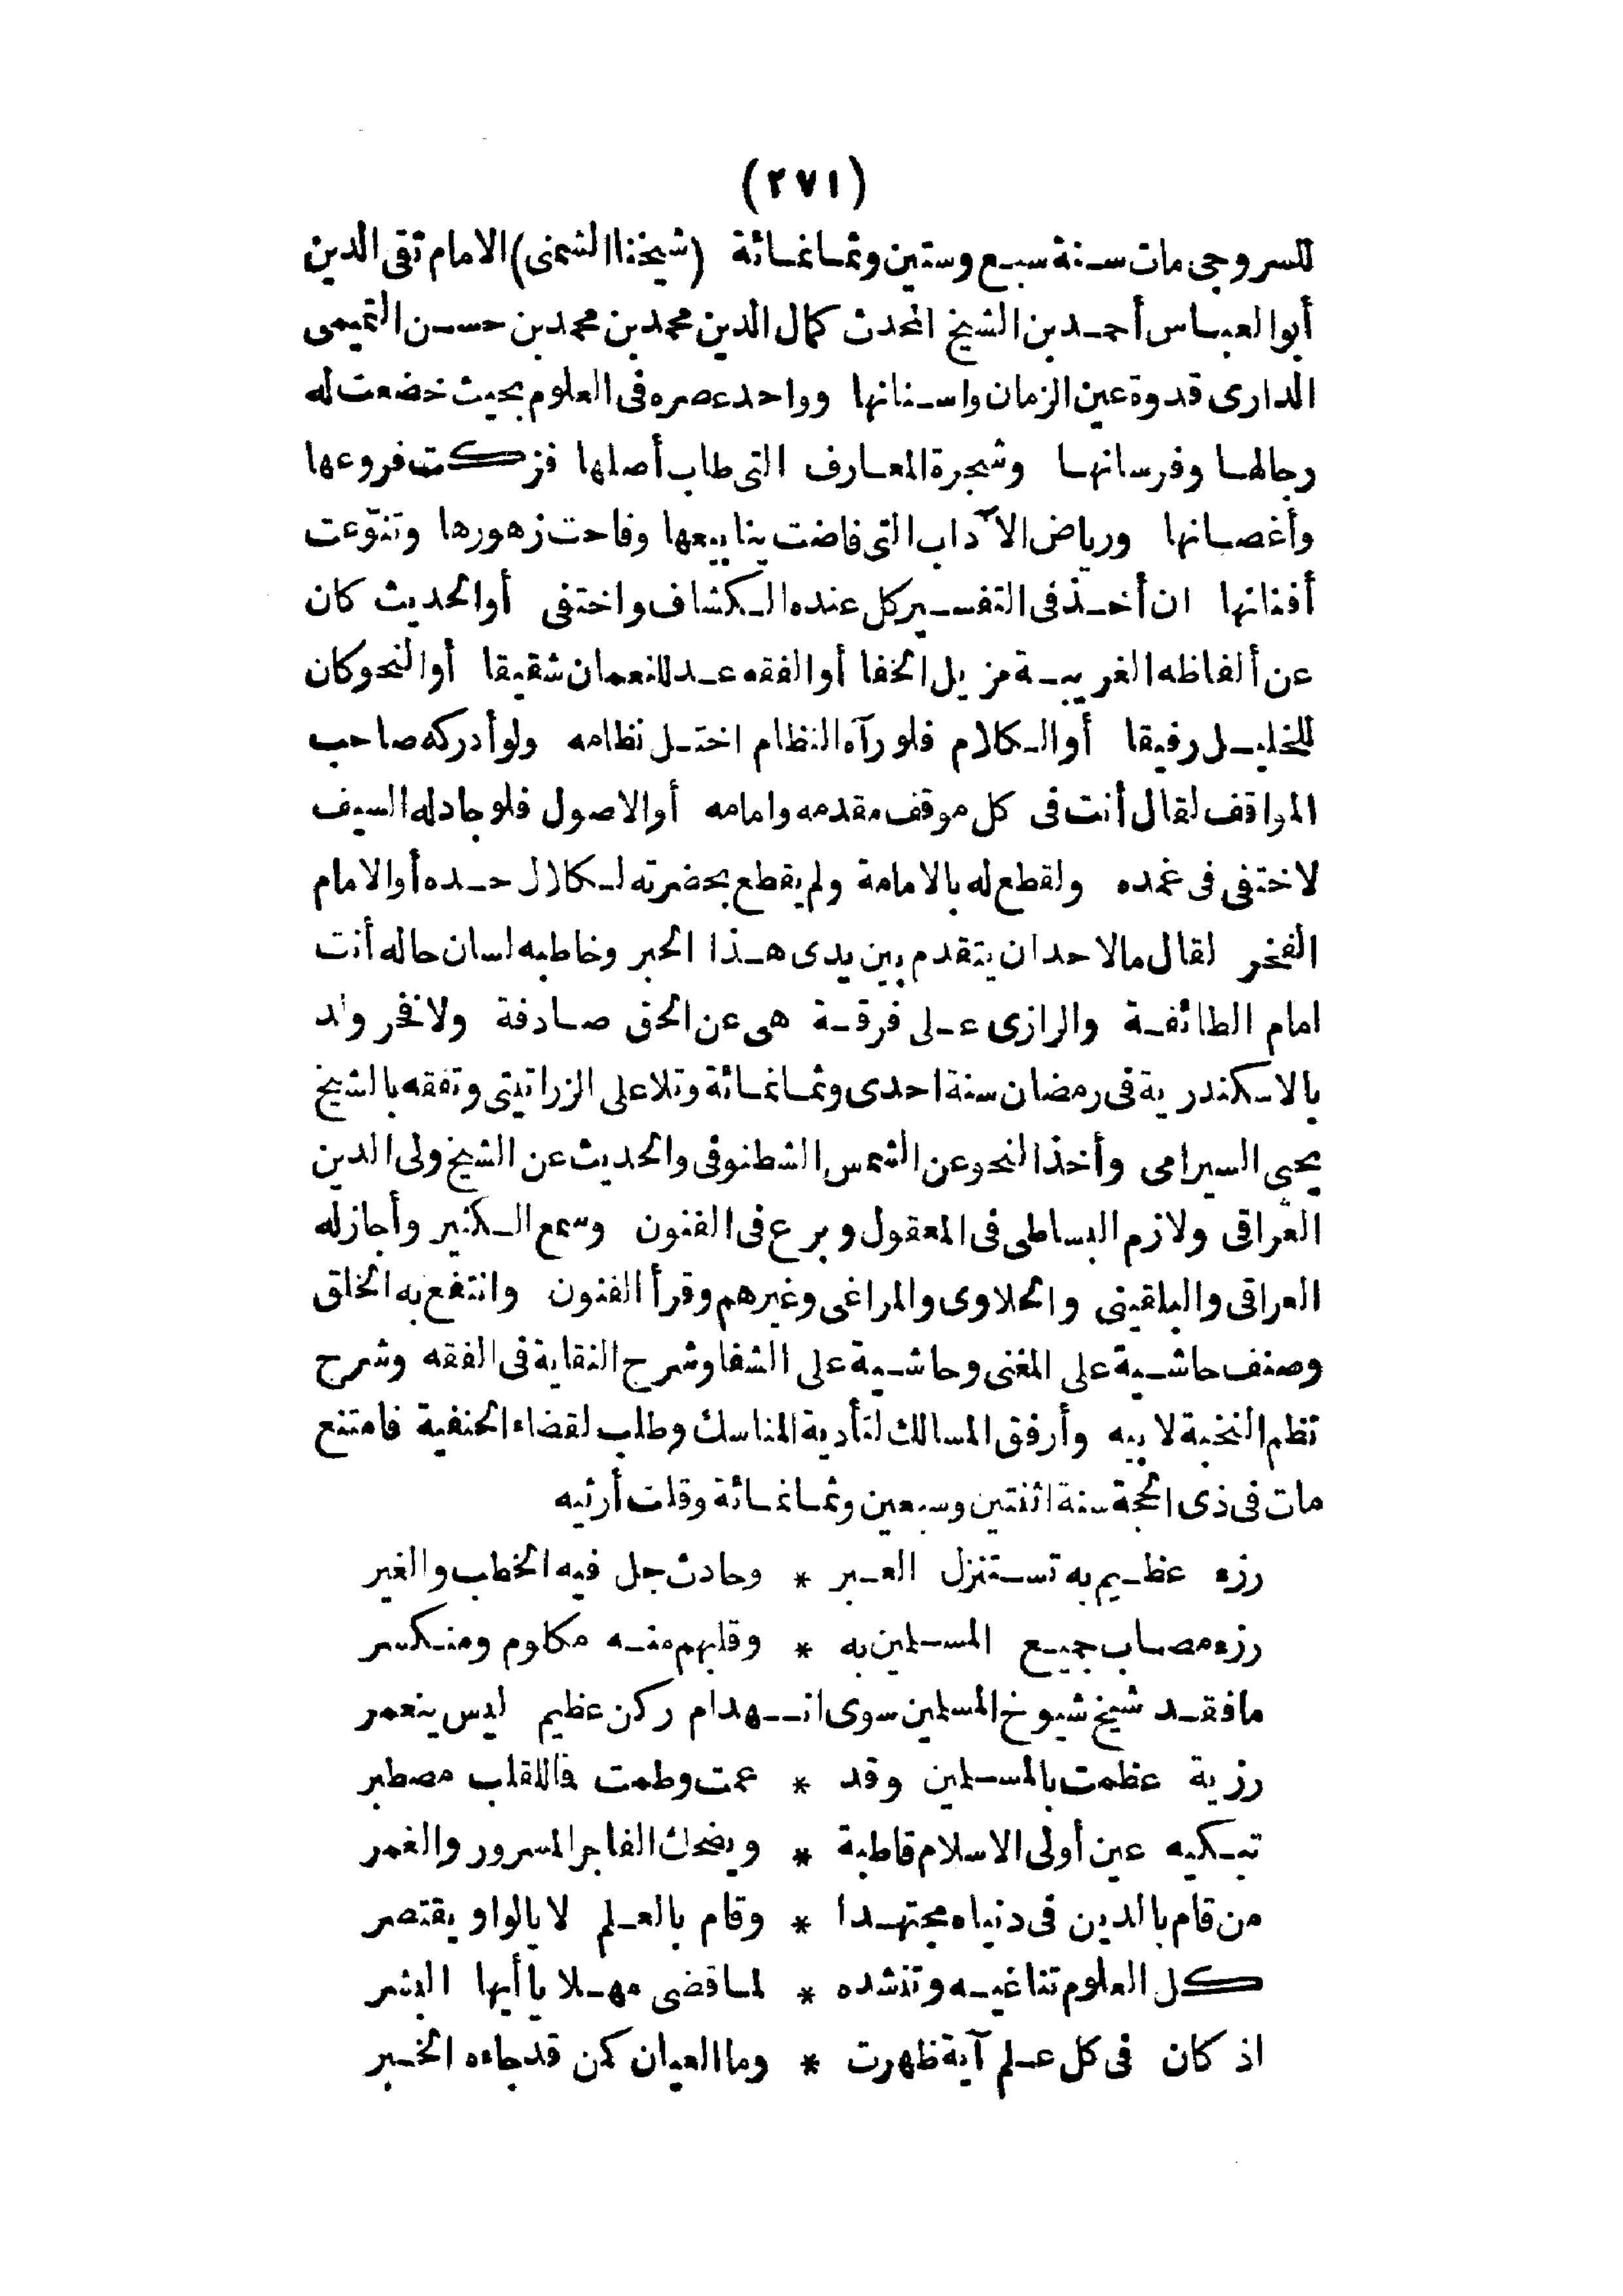 (٢٧١)
للسروجى مات سنة سبع وستين وثمانمائة (شيخنا الشمنى) الامام تقى الدين
أبو العباس أحمد بن الشيخ المحدث كمال الدين محمد بن محمد بن حسن التميمى
الدارى قدوة عين الزمان واسنانها وواحد عصره فى العلوم بحيث خضعت له
رجالها وفرسانها وشجرة المعارف التى طاب أصلها فزكت فروعها
وأغصانها ورياض الآداب التى فاضت ينابيعها وفاحت زهورها وتنوّعت
أفنانها ان أخذ فى التفسير كل عنده الكشاف واختفى أو الحديث كان
عن ألفاظه الغريبة مزيل الخفا أو الفقه عد للنعمان شقيقا أو النحو كان
للخليل رفيقا أو الكلام فلو رآه النظام اختل نظامه ولو أدركه صاحب
المواقف لقال أنت فى كل موقف مقدمه وامامه أو الاصول فلو جادله السيف
لاختفى فى غمده ولقطع له بالامامة ولم يقطع بحضرته لكلال حده أو الامام
الفخر لقال ما لاحد ان يتقدم بين يدى هذا الحبر وخاطبه لسان حاله أنت
امام الطائفة والرازى على فرقة هى عن الحق صادفة ولا فخر ولد
بالاسكندرية فى رمضان سنة احدى وثمانمائة وتلا على الزراتيتى وتفقه بالشيخ
يحيى السيرامى وأخذ النحو عن الشمس الشطنوفى والحديث عن الشيخ ولى الدين
العراقى ولازم البساطى فى المعقول وبرع فى الفنون وسمع الكثير وأجاز له
العراقى والبلقينى والحلاوى والمراغى وغيرهم وقرأ الفنون وانتفع به الخلق
وصنف حاشية على المغنى وحاشية على الشفا وشرح النقاية فى الفقه وشرح
نظم النخبة لابيه وأرفق المسالك لتأدية المناسك وطلب لقضاء الحنفية فامتنع
مات فى ذى الحجة سنة اثنتين وسبعين وثمانمائة وقلت أرثيه
رزء عظيم به تستنزل العبر * وحادث جل فيه الخطب والغير
رزء مصاب جميع المسلمين به * وقلبهم منه مكلوم ومنكسر
ما فقد شيخ شيوخ المسلمين سوى انهدام ركن عظيم ليس ينعمر
رزية عظمت بالمسلمين وقد * عمت وطمت فما للقلب مصطبر
تبكيه عين أولى الاسلام قاطبة * ويضحك الفاجر المسرور والغمر
من قام بالدين فى دنياه مجتهدا * وقام بالعلم لا يالو او يقتصر
كل العلوم تناغيه وتنشده * لما قضى مهلا يا أيها البشر
اذ كان فى كل علم آية ظهرت * وما العيان كمن قد جاءه الخبر